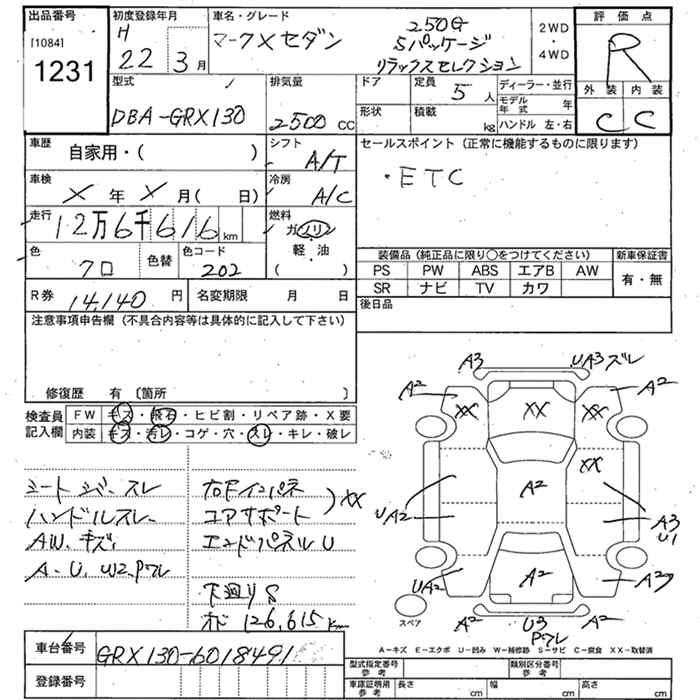 出品番号
[1084]
1231
初度登録年月
H
22 3月
車名・グレード
マークXセダン
250G
Sパッケージ
リラックスセレクション
2WD
・
4WD
評価点
R
外装 内装
C C
型式
DBA-GRX130
排気量
2500 CC
ドア
定員
5人
形状
積載
kg
ディーラー・並行
モデル年式 年
ハンドル 左・右
車歴
自家用・( )
シフト
A/T
車検
X年X月( 日)
冷房
A/C
走行
12万6千616km
燃料
ガソリン
軽・油
( )
色
クロ
色替
色コード
202
R券 14,140円
名変期限 月 日
セールスポイント(正常に機能するものに限ります)
・ETC
装備品(純正品に限り○をつけてください)
PS PW ABS エアB AW
SR ナビ TV カワ
新車保証書
有・無
後日品
注意事項申告欄(不具合内容等は具体的に記入して下さい)
修復歴 有〔箇所 〕
検査員
記入欄
FW キズ・飛石・ヒビ割・リペア跡・X要
内装 キズ・汚レ・コゲ・穴・スレ・キレ・破レ
シートシワ・スレ
ハンドルスレ
AW.キズ
A-U.W2.Pクル
右Fインパネ
コアサポート
エンドパネルU
)XX
下廻りS
オド 126,615km
A3
UA3ズレ
A2
A2
XX
XX
XX
XX
A2
UA2
A3
U1
UA2
A2
A2
A2
U3
Pクル
A2
スペア
A-キズ E-エクボ U-凹み W-補修跡 S-サビ C-腐食 XX-取替済
車台番号
GRX130-6018491
登録番号
型式指定番号
参考
類別区分番号
参考
車庫証明用
参考
長さ cm
幅 cm
高さ cm